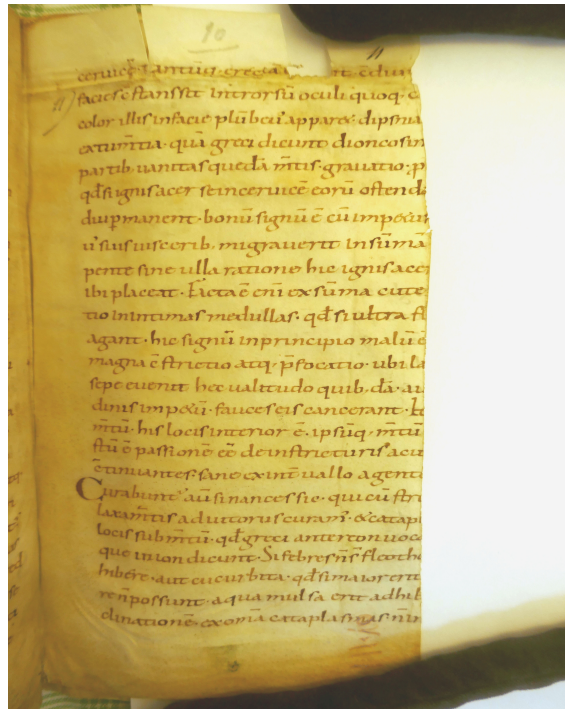 10
facies & transsit introrsū oculi quoq·
color illis in facie plūbeū appar&· dipsnia
extum̄tia· quā greci dicunt dioncosin
partib· uanitas quedā m̄tis· grauatio·
qd̄ si ignis acer se in ceruicē eorū ostend
diu p̄manent· bonū signū ē cū imp&ū
uisuis uiscerib· migrauerit in sūmā
pente sine ulla ratione hic ignis acer
ibi placeat· Facta ē eni ex sūma cute
tio in intimas medullas· qd̄ si ultra
agant· hic signū in principio malū ē
magna ē strictio atq· p̄focatio· ubi
sepe euenit hec ualitudo quib· dā·
dinis imp&ū· fauces eis cancerant·
m̄tū· his locis interior ē· ipsūq· m̄tū
ē passionē eē de in stricturis acu
ētinuantes· sane ex int̄uallo agent
Curabunt· aū sinances sic· qui cū stri
laxam̄tis adiutorus curam̄· & catap
locis subm̄tū· qd̄ greci antereon uoc
que union dicunt· Si febres n̄ s̄ fleoth
hibere· aut cucurbita· qd̄ si maior erit
re n̄ possunt· aqua mulsa erit adhib
clinatione· ex omā cataplasmas